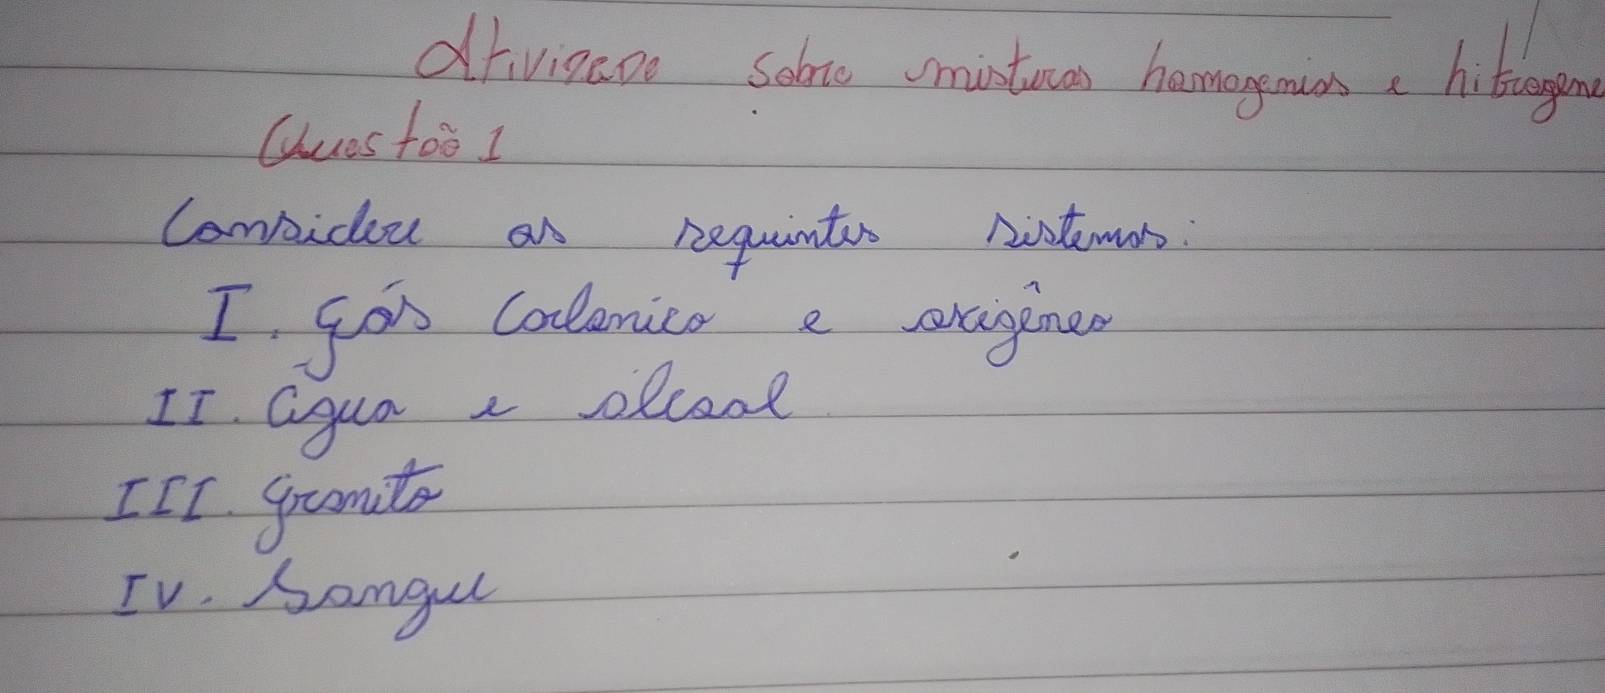 Atividade sobre misturas homogenias e hitrogene
Questoõ 1
Considere as seguintes sistemas:
I. gás Carbonico e oxigêneo
II. água e álcool
III. granito
IV. Sangue